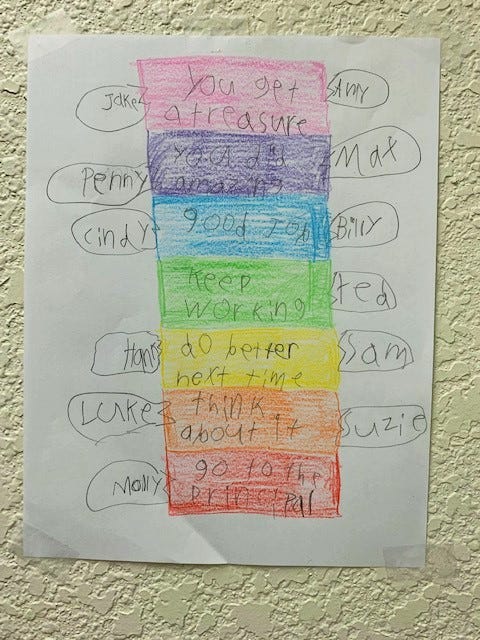 You get
a treasure
Jake
Amy
you did
amazing
Penny
Max
good Job
Cindy
Billy
keep
working
ted
do better
next time
Hans
Sam
think
about it
Luke
Suzie
go to the
principall
Molly